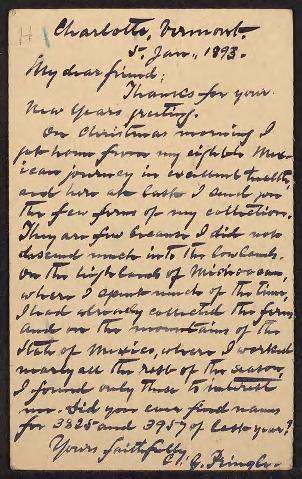 Charlotte, Vermont.
5, Jan., 1893.
My dear friend;
Thanks for your
New Years greeting.
On Christmas morning I
got home from my eighth Mex-
ican journey in excellent health,
and here at last I send you
the few ferns of my collection.
They are few because I did not
descend much into the lowlands.
On the highlands of Michoacan,
where I spent much of the time,
I had already collected the ferns
and on the mountains of the
State of Mexico, where I worked
nearly all the rest of the season,
I found only these to interest
me. Did you ever find names
for 3825 and 3957 of last year?
Yours faithfully
C. G. Pringle.